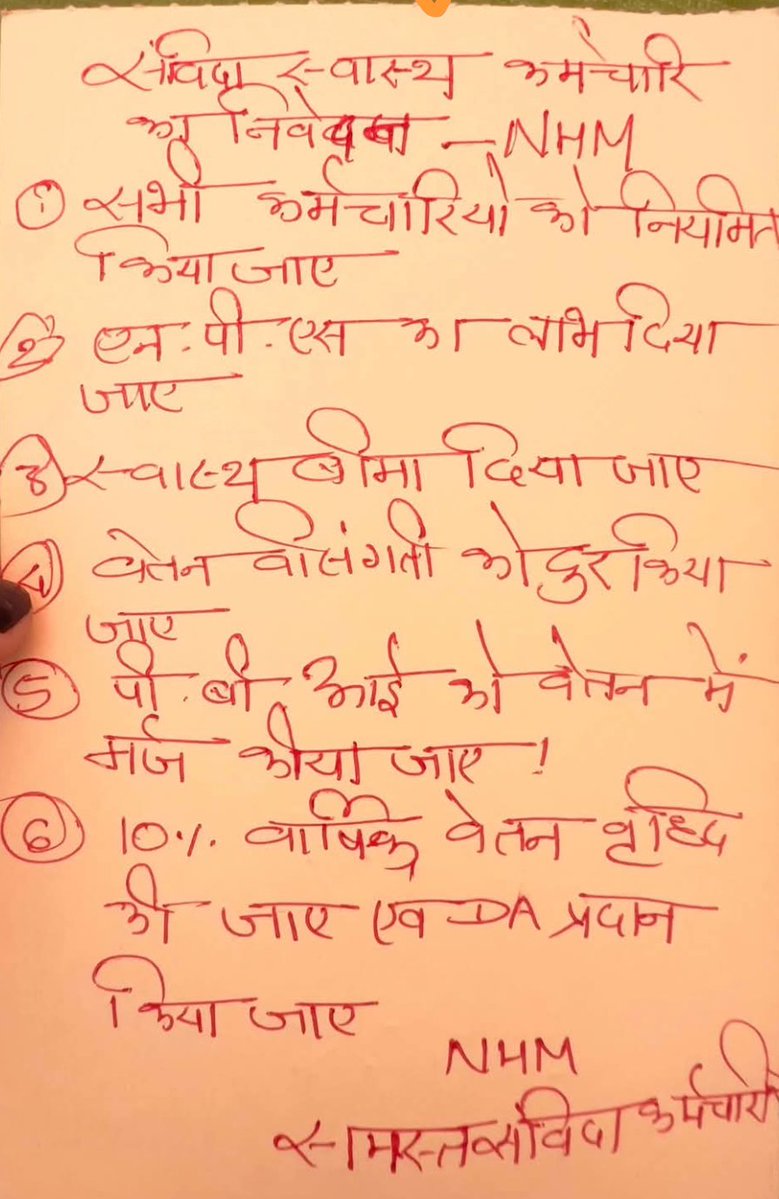 संविदा स्वास्थ कर्मचारि
का निवेदन - NHM
① सभी कर्मचारियो को नियमित
किया जाए
② एन.पी.एस का लाभ दिया
जाए
③ स्वास्थ बीमा दिया जाए
④ वेतन वीसंगती को दुर किया
जाए
⑤ पी.बी.आई को वेतन में
मर्ज कीया जाए !
⑥ 10% वार्षिक वेतन वृध्दि
की जाए एव DA प्रदान
किया जाए
NHM
समस्त संविदा कर्मचारी